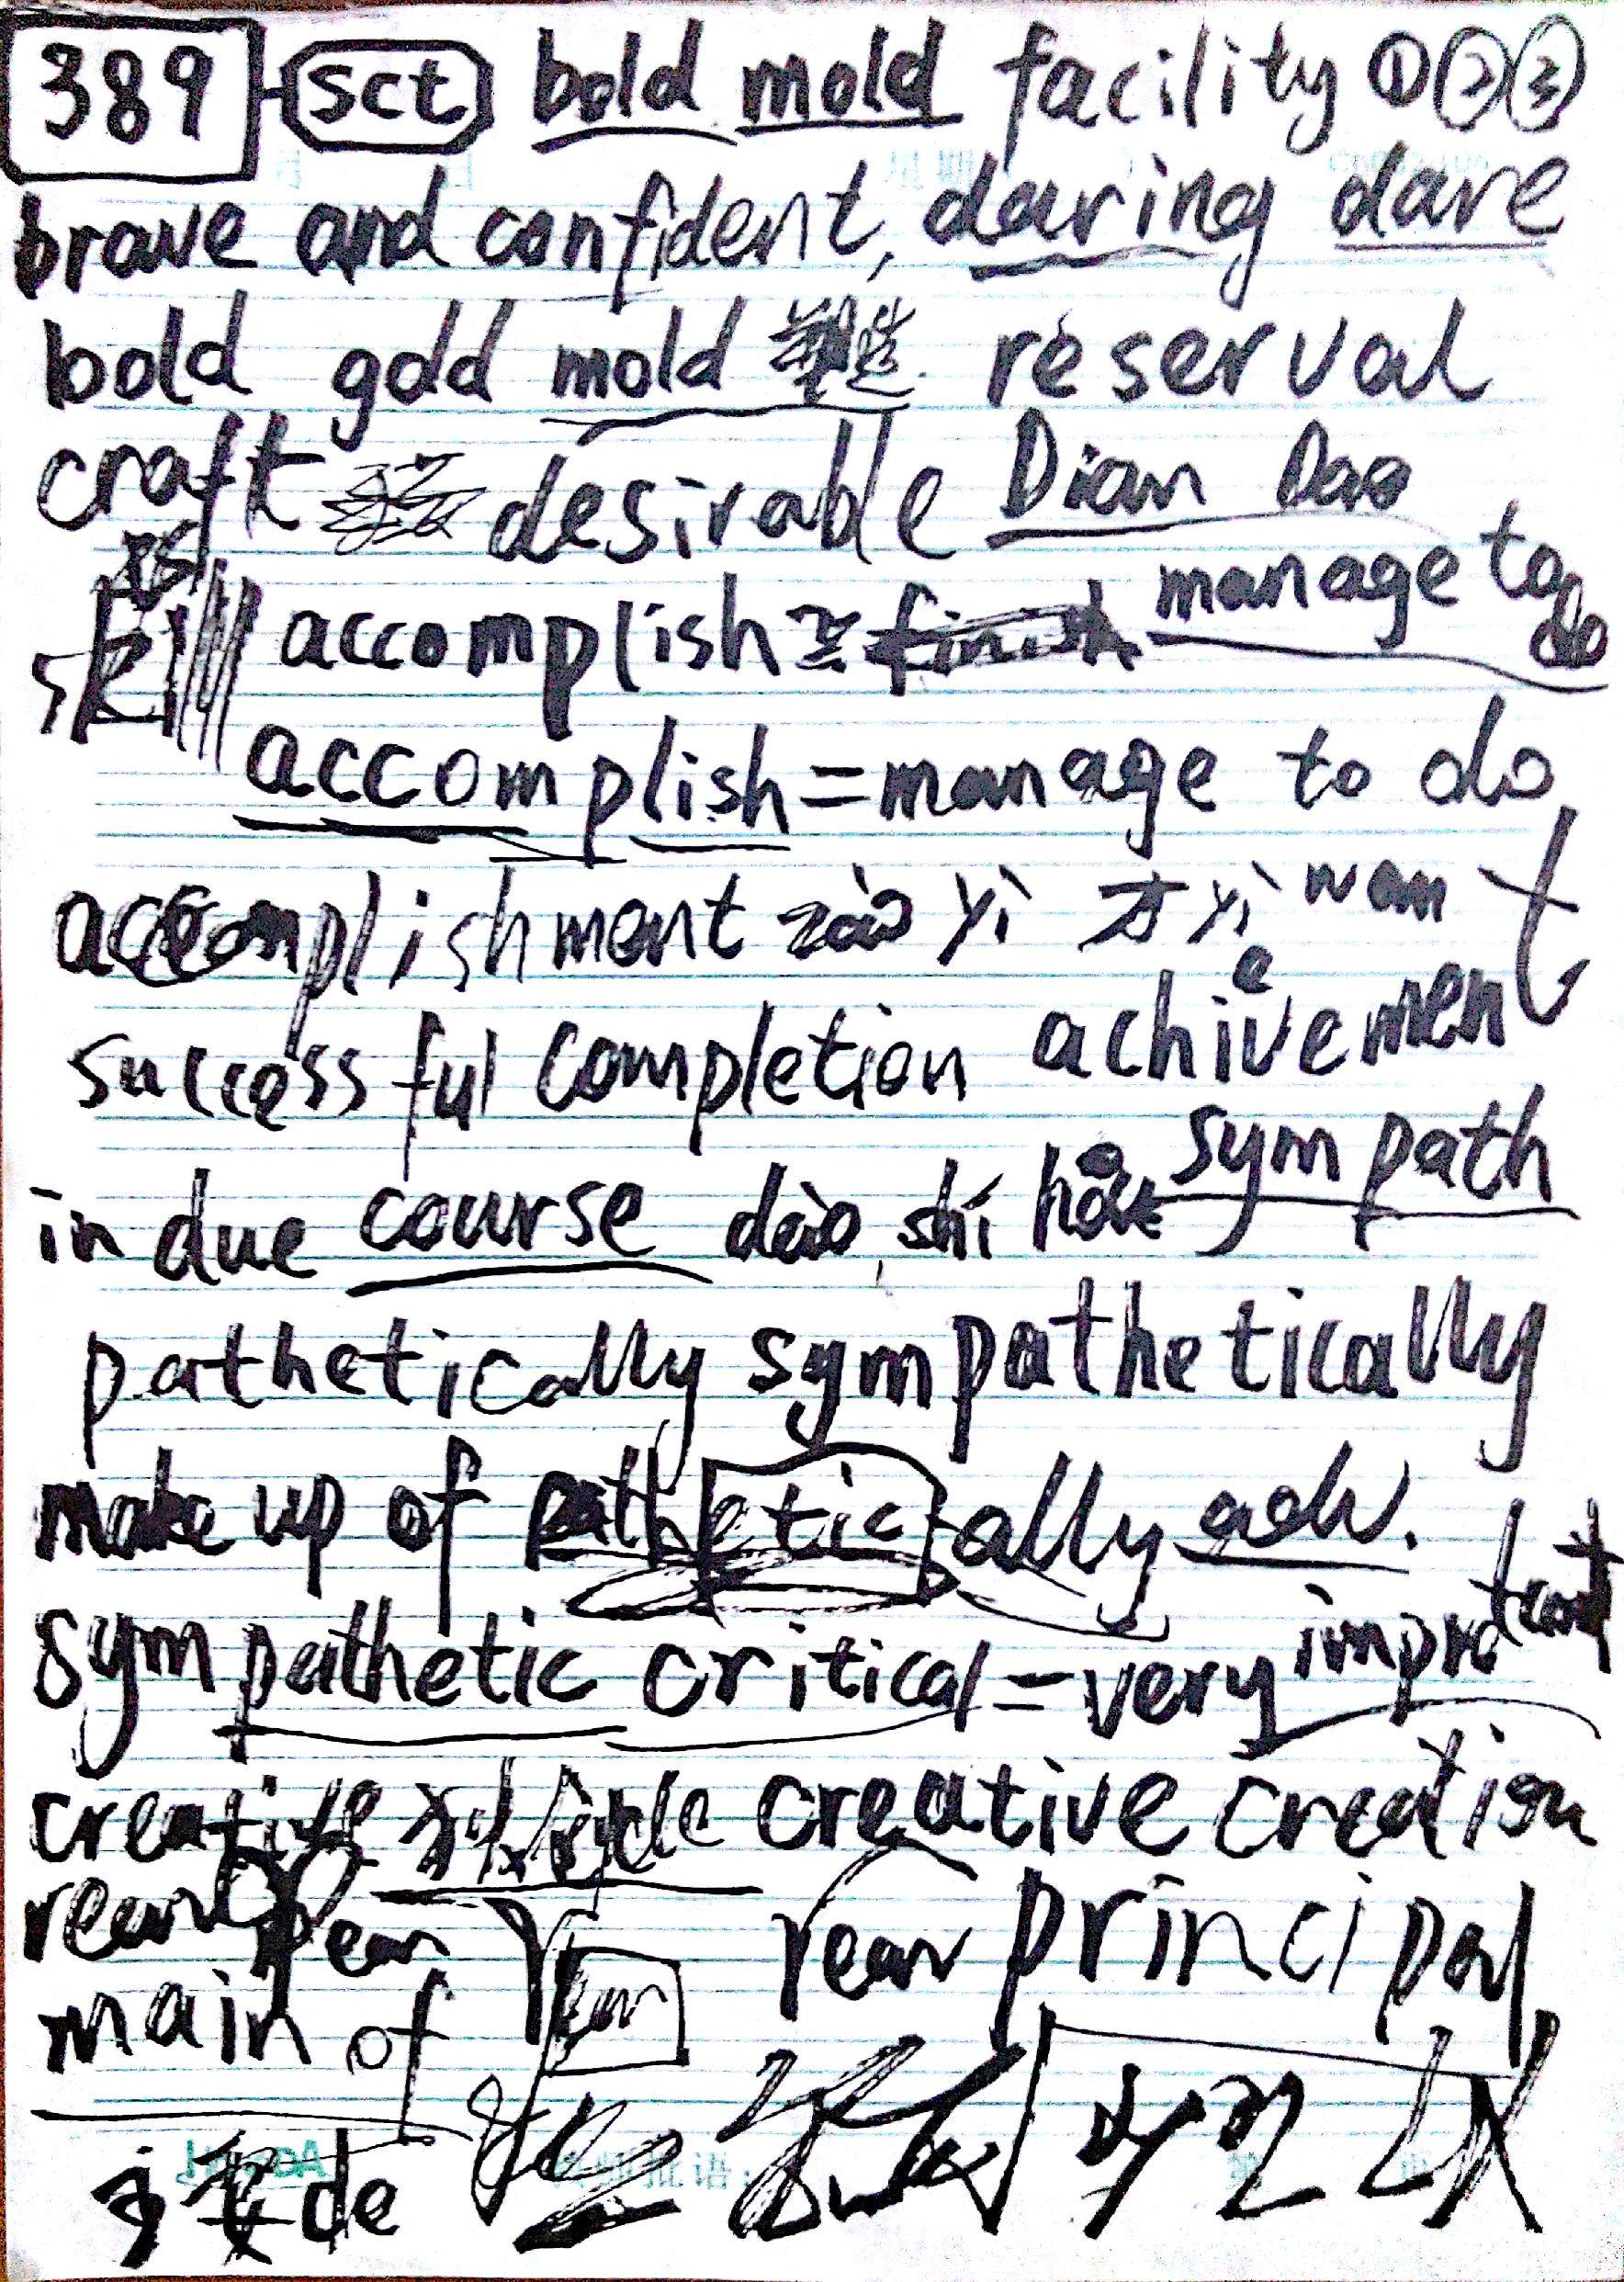 389 sct bold mold facility ①②③
brave and confident, daring dare
bold gold mold 塑造 reserval
craft desirable Dian Dao
skill accomplish ≈ finish manage to do
accomplish = manage to do
accomplishment zào yì 才 yì wan
successful completion achievement
in due course dào shí hòu sympath
pathetically sympathetically
make up of pathetically adv.
sympathetic critical = very improtant
creative creative creation
rear pear rear principal
main of
主要 de